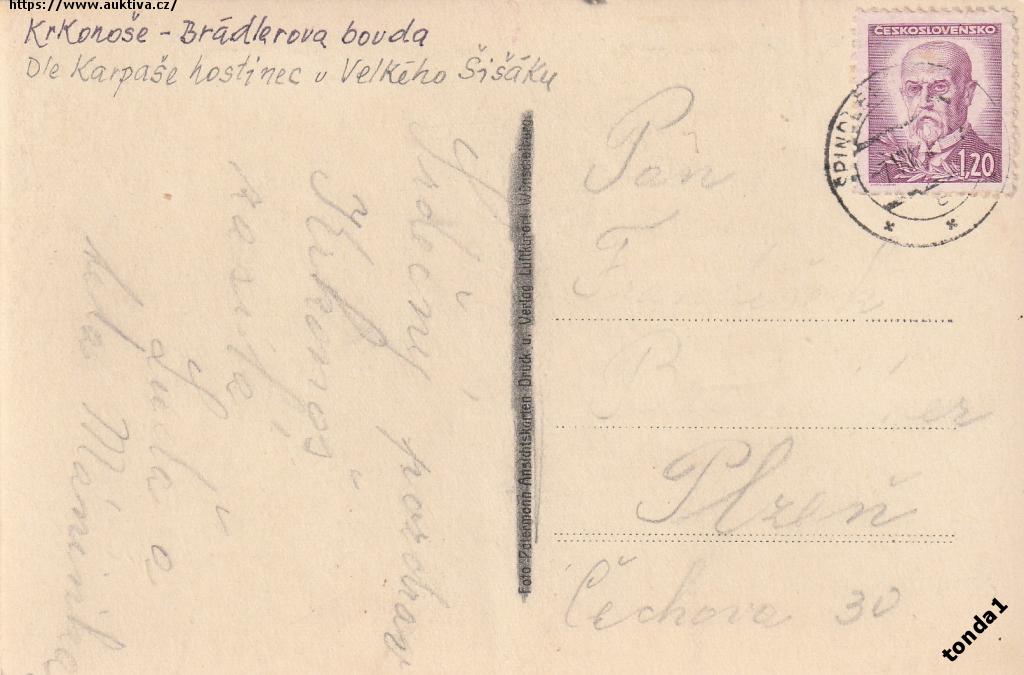 https://www.auktiva.cz/
Krkonoše - Brádlerova bouda
Dle Karpaše hostinec u Velkého Šišáku
ČESKOSLOVENSKO
1,20
Srdečný pozdrav
Krkonoš
zasílá
Luďa a
Máminka
Foto Patermann Ansichtskarten Druck u. Verlag Luftkurort Wünschelburg
Pan
Plzeň
Čechova 30
tonda1